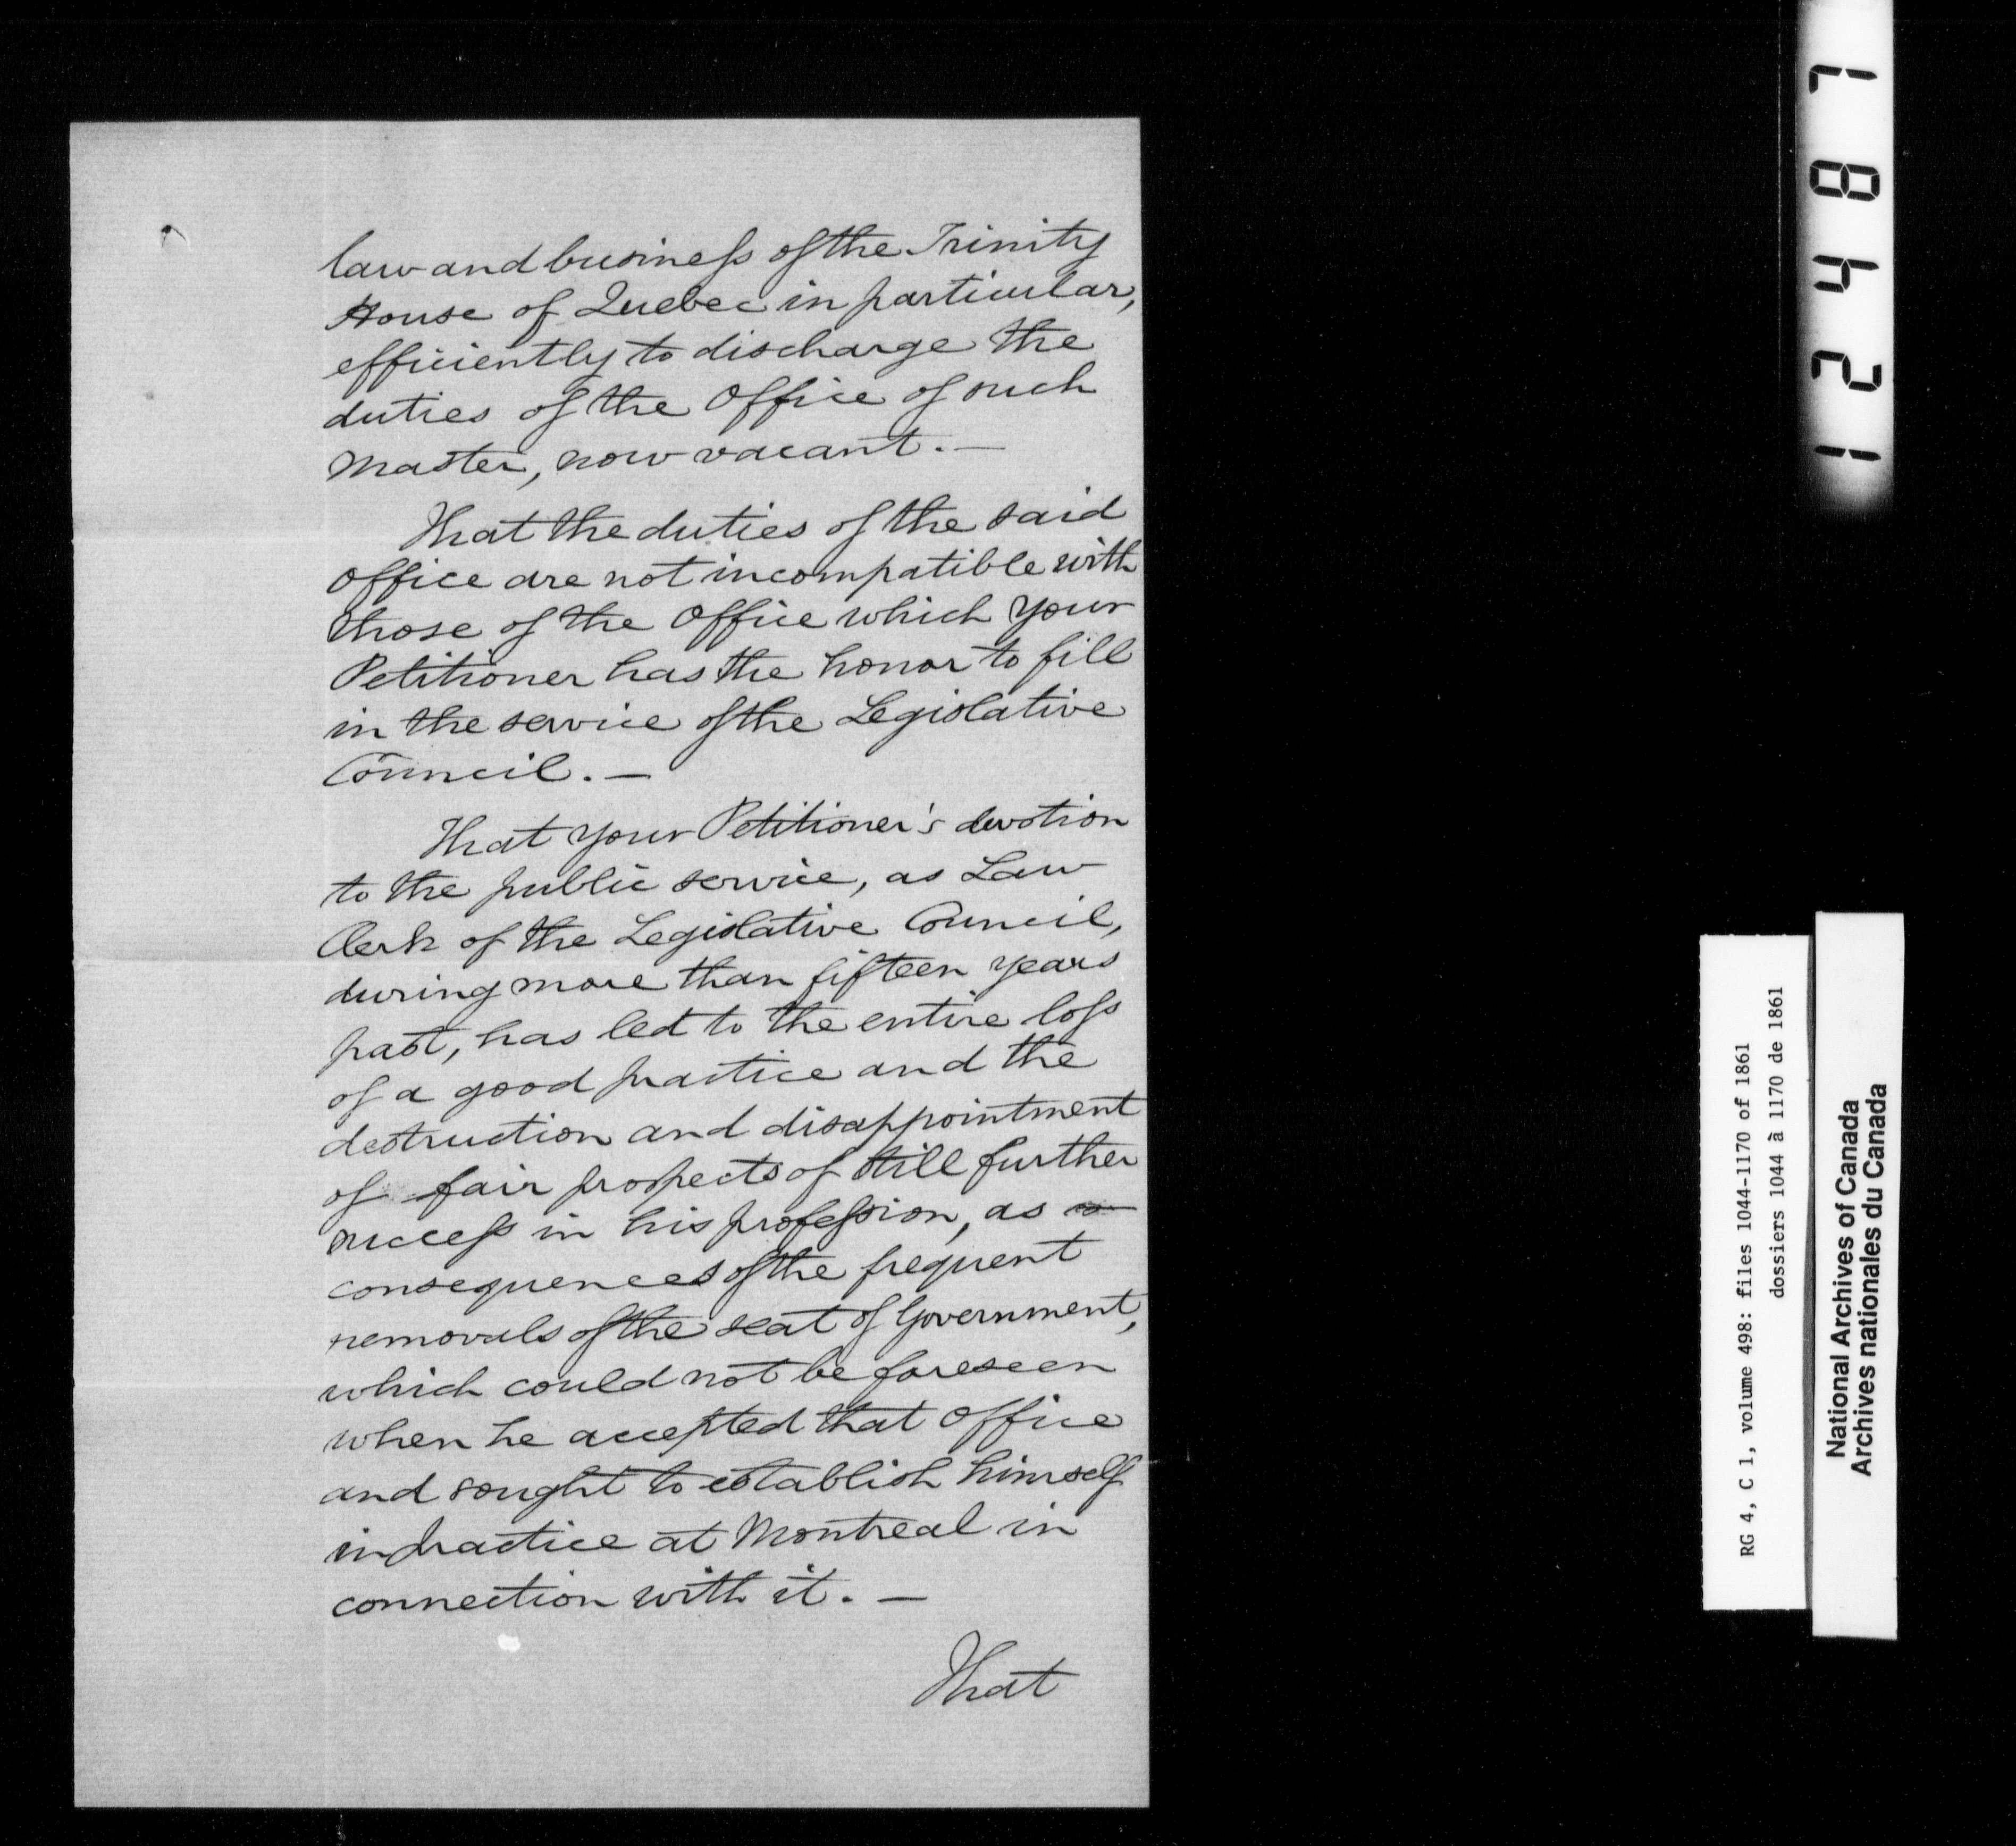 law and business of the Trinity
House of Quebec in particular,
efficiently to discharge the
duties of the Office of such
Master, now vacant. —
That the duties of the said
Office are not incompatible with
those of the Office which Your
Petitioner has the honor to fill
in the service of the Legislative
Council. —
That Your Petitioner's devotion
to the public service, as Law
Clerk of the Legislative Council,
during more than fifteen years
past, has led to the entire loss
of a good practice and the
destruction and disappointment
of fair prospects of still further
success in his profession, as
consequences of the frequent
removals of the seat of Government,
which could not be foreseen
when he accepted that Office
and sought to establish himself
in practice at Montreal in
connection with it. —
That
12487
RG 4, C 1, volume 498: files 1044-1170 of 1861
dossiers 1044 à 1170 de 1861
National Archives of Canada
Archives nationales du Canada